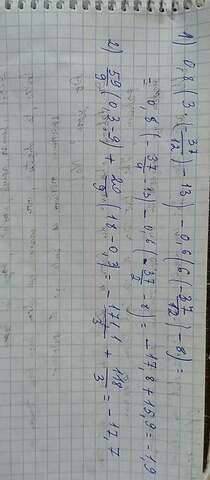 1) 0,8 (3·(-37/12) - 13) - 0,6 (6(-37/12) - 8) =
= 0,8 (-37/4 - 13) - 0,6 (-37/2 - 8) = -17,8 + 15,9 = -1,9
2) 59/9 (0,3 - 9) + 20/9 (18 - 0,3) = - + 118/3 = -17,7